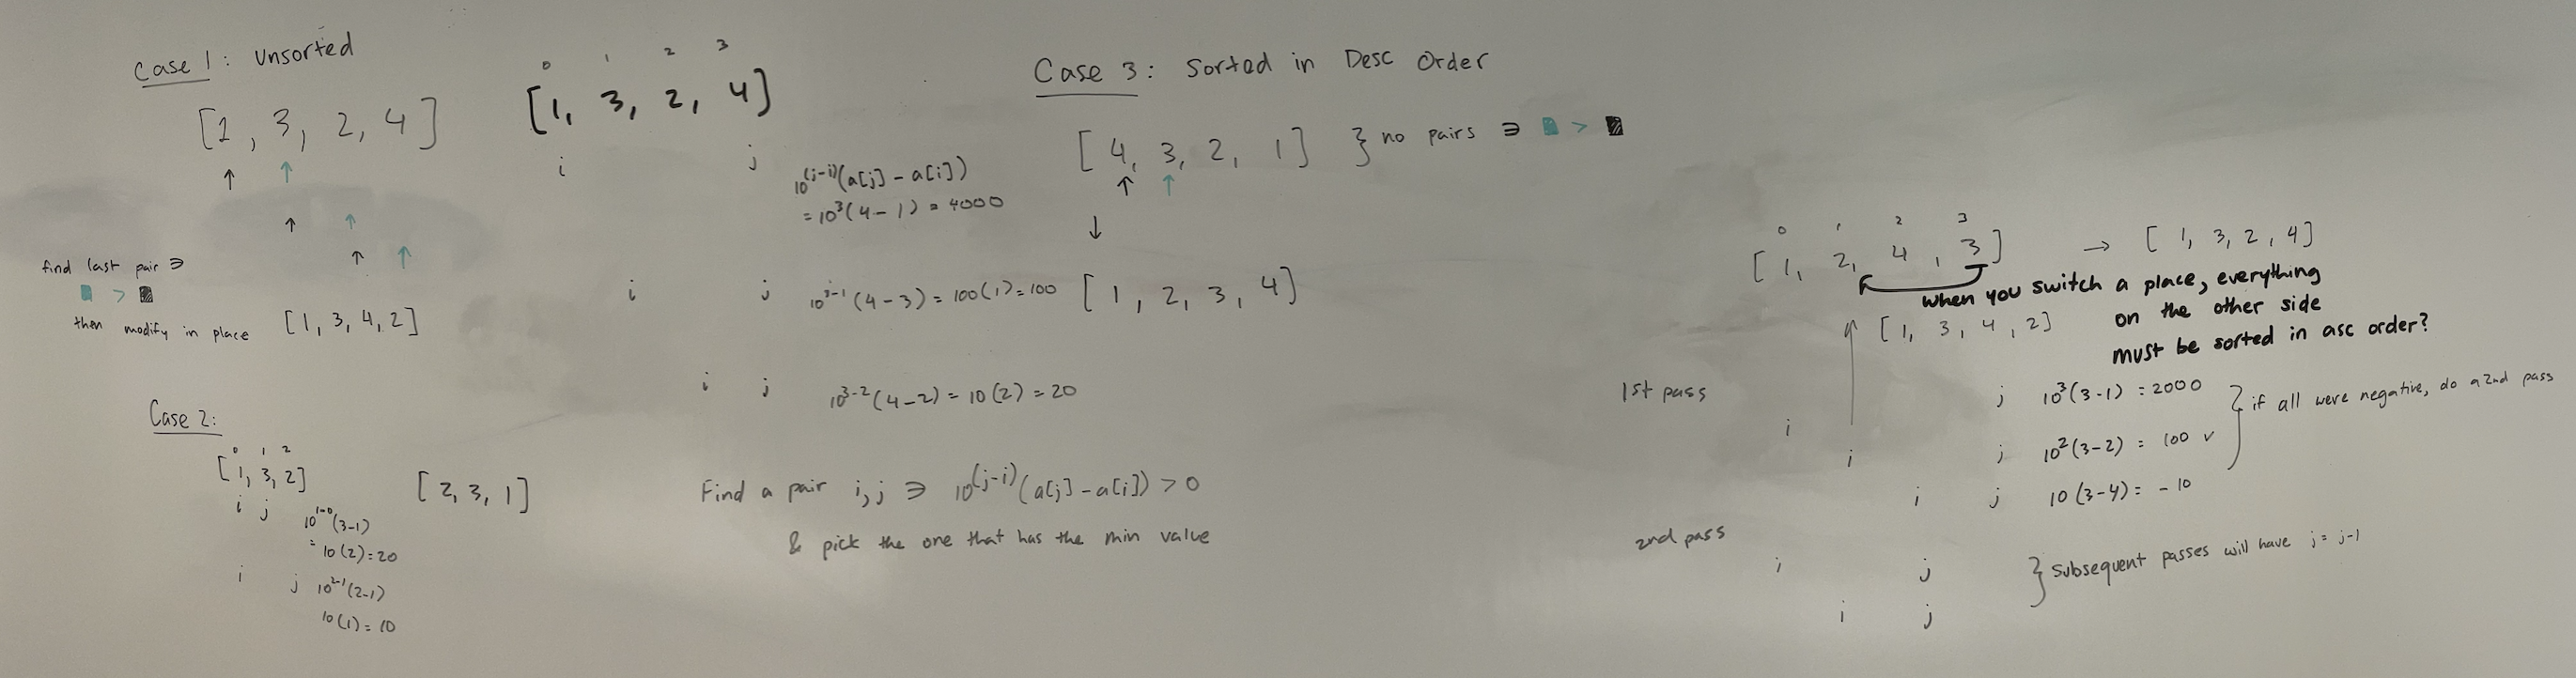 Case 1: Unsorted
[1, 3, 2, 4]
↑ ↑
↑ ↑
↑ ↑
find last pair ∋
>
then modify in place [1, 3, 4, 2]
Case 2:
0 1 2
[1, 3, 2] [2, 3, 1]
i j 10^1-0(3-1)
= 10(2)=20
i j 10^2-1(2-1)
10(1)=10
0 1 2 3
[1, 3, 2, 4]
i j 10^(j-i)(a[j] - a[i])
= 10^3(4-1) = 4000
i j 10^3-1(4-3) = 100(1)=100
i j 10^3-2(4-2) = 10(2) = 20
Find a pair i,j ∋ 10^(j-i)(a[j] - a[i]) > 0
& pick the one that has the min value
Case 3: Sorted in Desc Order
[4, 3, 2, 1] } no pairs ∋ >
↑ ↑
↓
[1, 2, 3, 4]
0 1 2 3
[1, 2, 4, 3] → [1, 3, 2, 4]
when you switch a place, everything
on the other side
must be sorted in asc order?
[1, 3, 4, 2]
1st pass
i j 10^3(3-1) = 2000
i j 10^2(3-2) = 100 ✓
i j 10(3-4) = -10
} if all were negative, do a 2nd pass
2nd pass
i j
i j
} subsequent passes will have j = j-1